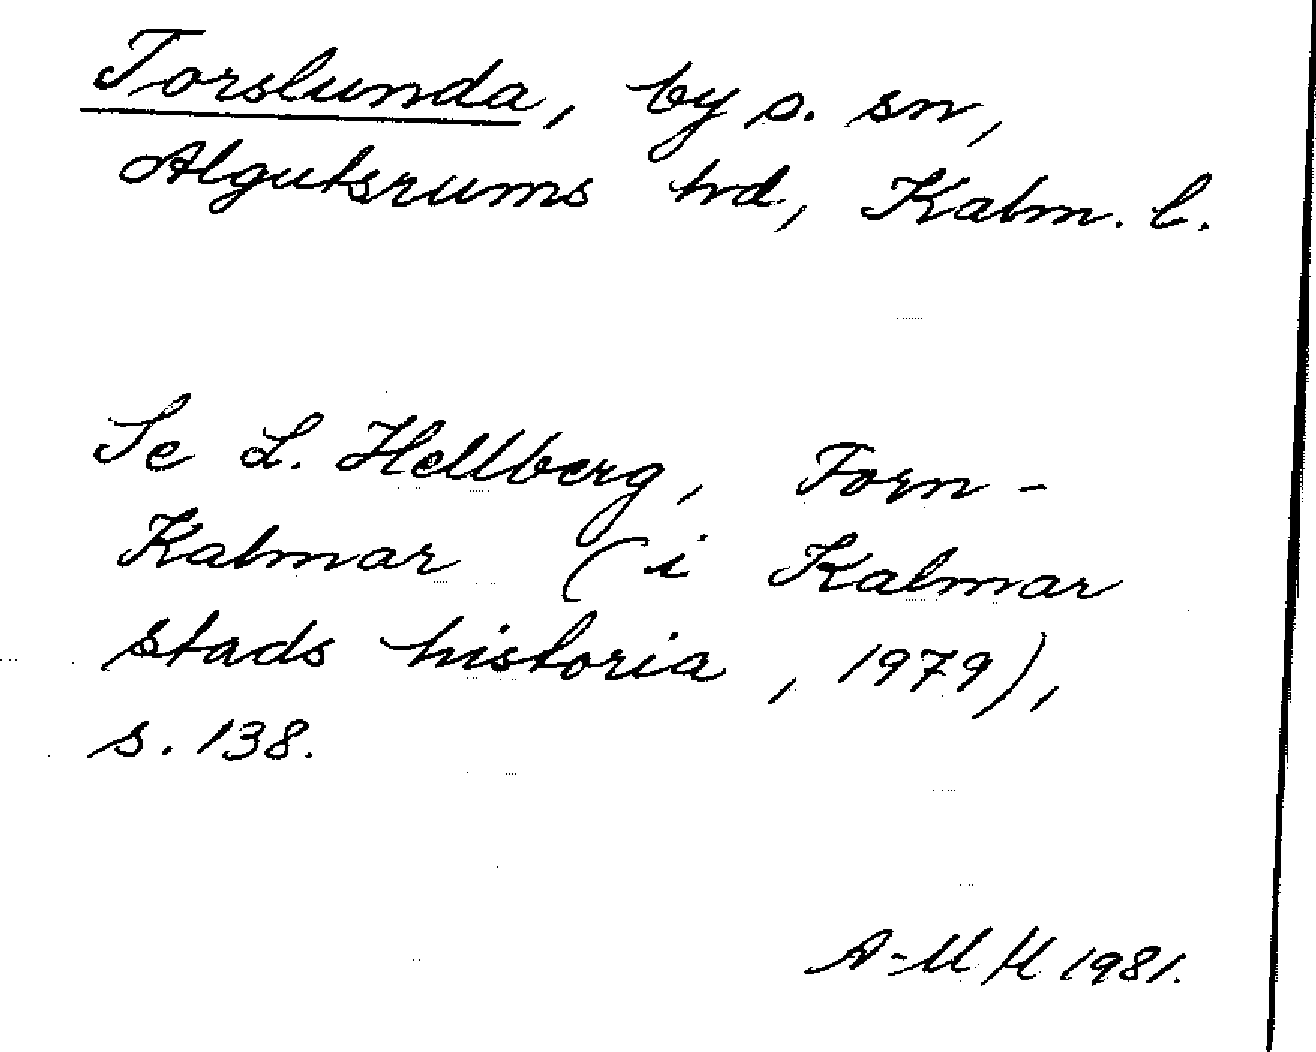 Torslunda, by s. sn,
Algutsrums hd, Kalm. l.
Se L. Hellberg, Forn-
Kalmar (i Kalmar
stads historia, 1979),
s. 138.
A-M H 1981.